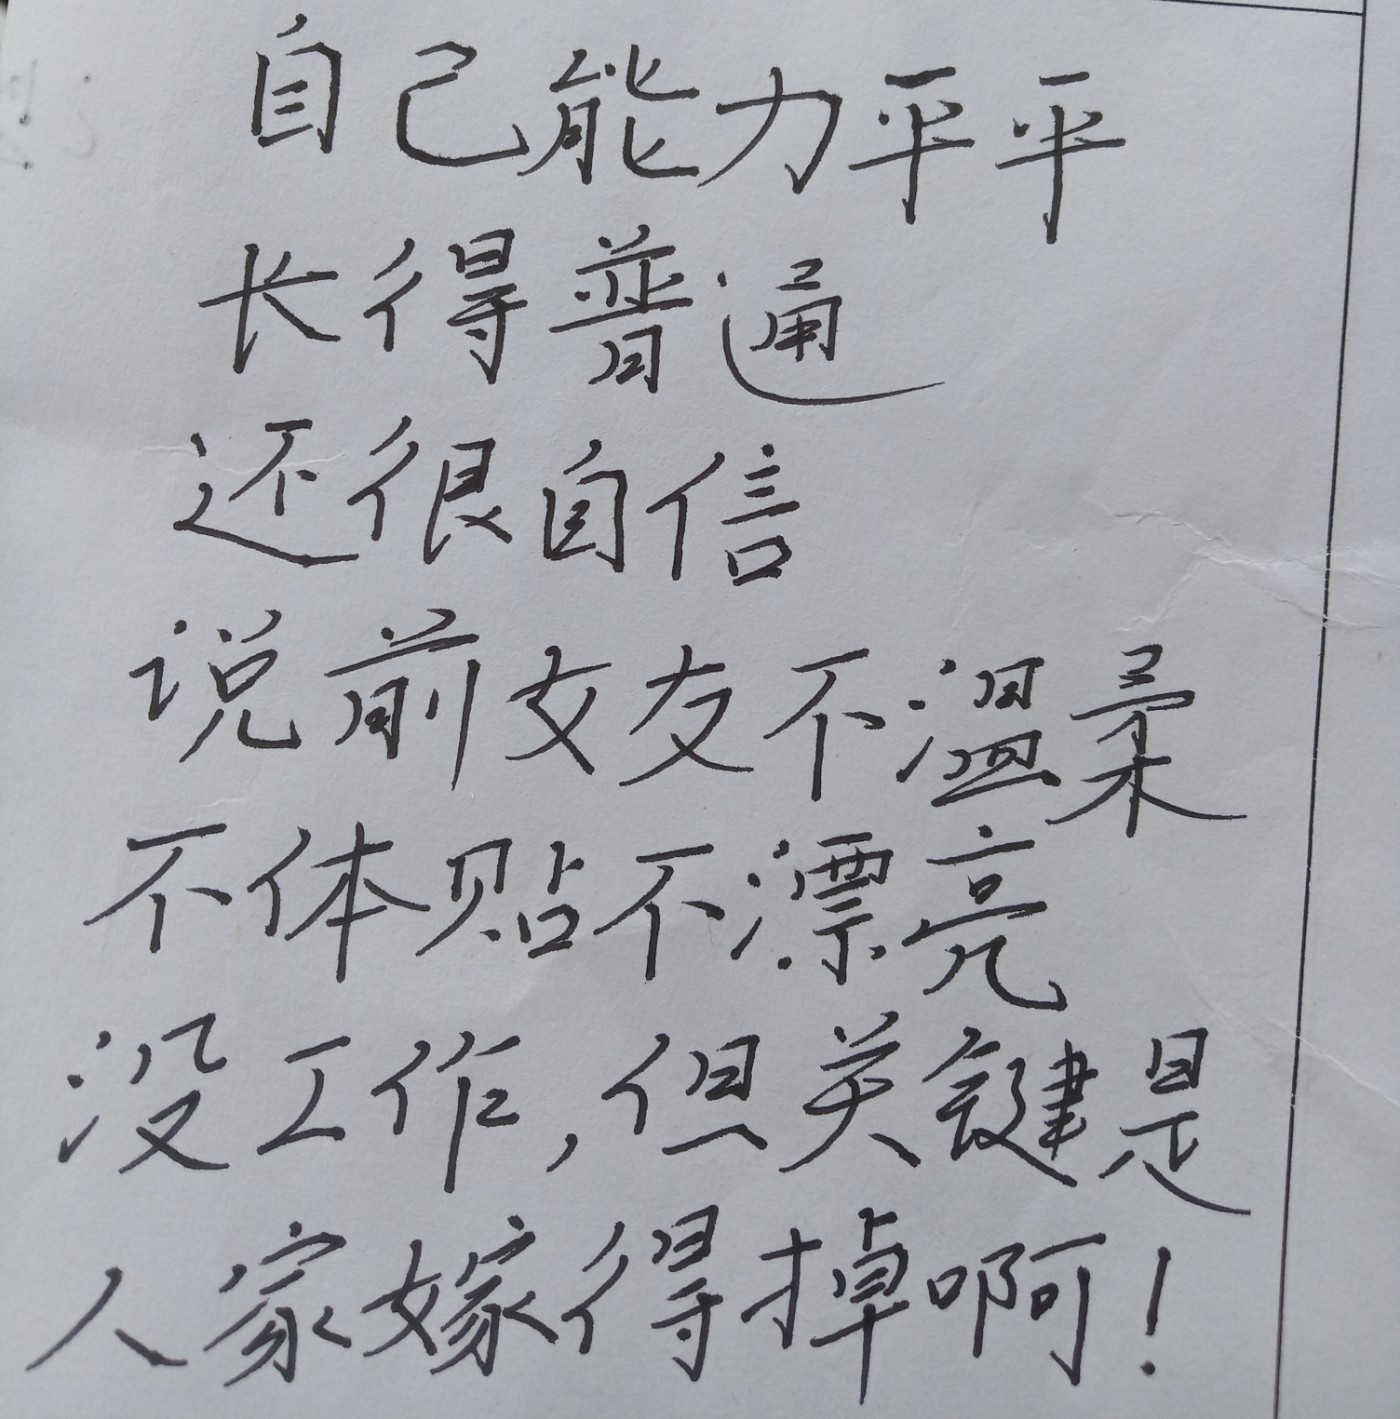 自己能力平平
长得普通
还很自信
说前女友不温柔
不体贴不漂亮
没工作,但关键是
人家嫁得掉啊!